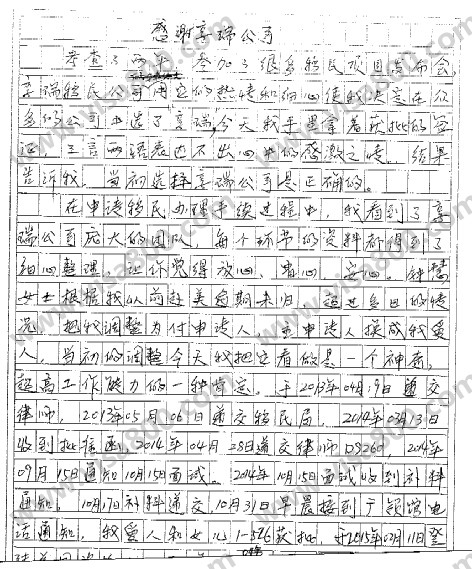 感谢亨瑞公司
考查了两年，参加了很多移民项目发布会，
亨瑞移民公司用它的热情和细心使我决定在众
多的公司中选了亨瑞，今天我手里拿着获批的签
证，三言两语表达不出心中的感激之情。结果
告诉我，当初选择亨瑞公司是正确的。
在申请移民办理手续过程中，我看到了亨
瑞公司庞大的团队，每个环节的资料都得到了
细心整理，让你觉得放心、省心、安心。钟慧
女士根据我以前赴美自期未归，超过多日的情
况，把我调整为付申请人，主申请人换成我爱
人，当初的调整今天我把它看做是一个神奇，
超高工作能力的一种肯定。于2013年04月19日递交
律师，2013年05月06日递交移民局，2014年03月13日
收到批准函，2014年04月28日递交律师DS260，2014年
09月15日通知10月15日面试。2014年10月15日面试收到补料
通知，10月17日补料递交，10月31日早晨接到广领馆电
话通知，我爱人和女儿I-526获批，于2015年03月11日登
www.visa800.com